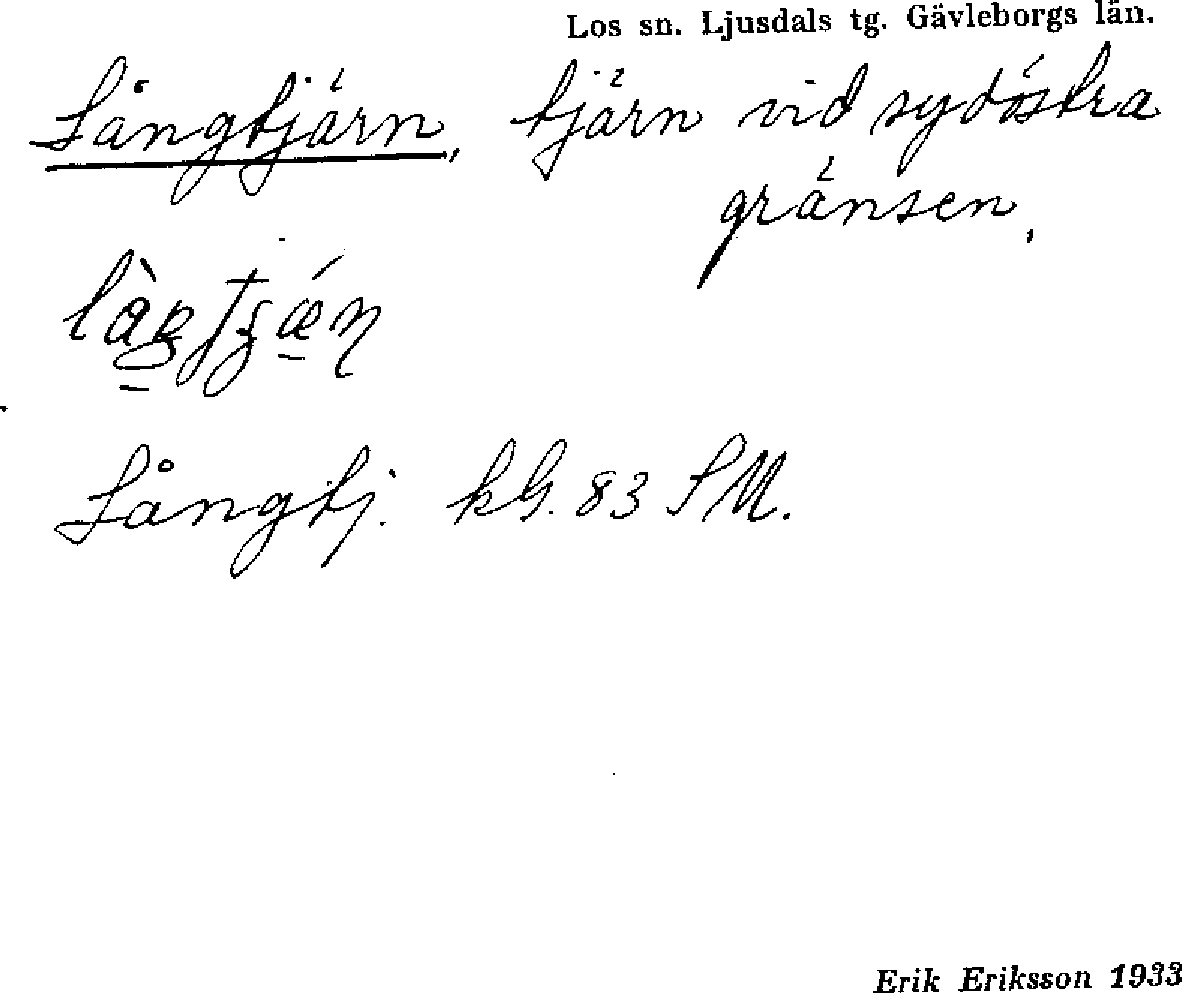 Los sn. Ljusdals tg. Gävleborgs län.
Långtjärn, tjärn vid sydöstra
gränsen,
Långtj. kG. 83 SM.
Erik Eriksson 1933